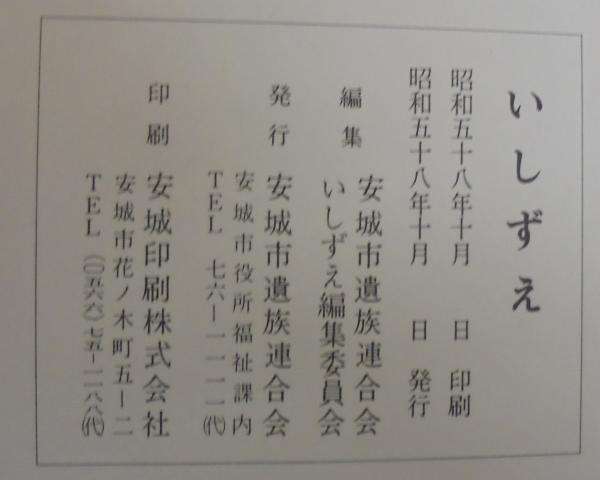 いしずえ
昭和五十八年十月　日　印刷
昭和五十八年十月　日　発行
編集　安城市遺族連合会
いしずえ編集委員会
発行　安城市遺族連合会
安城市役所福祉課内
TEL　七六ー一一一一㈹
印刷　安城印刷株式会社
安城市花ノ木町五ー二
TEL　(〇五六六)七五ー一一八八㈹